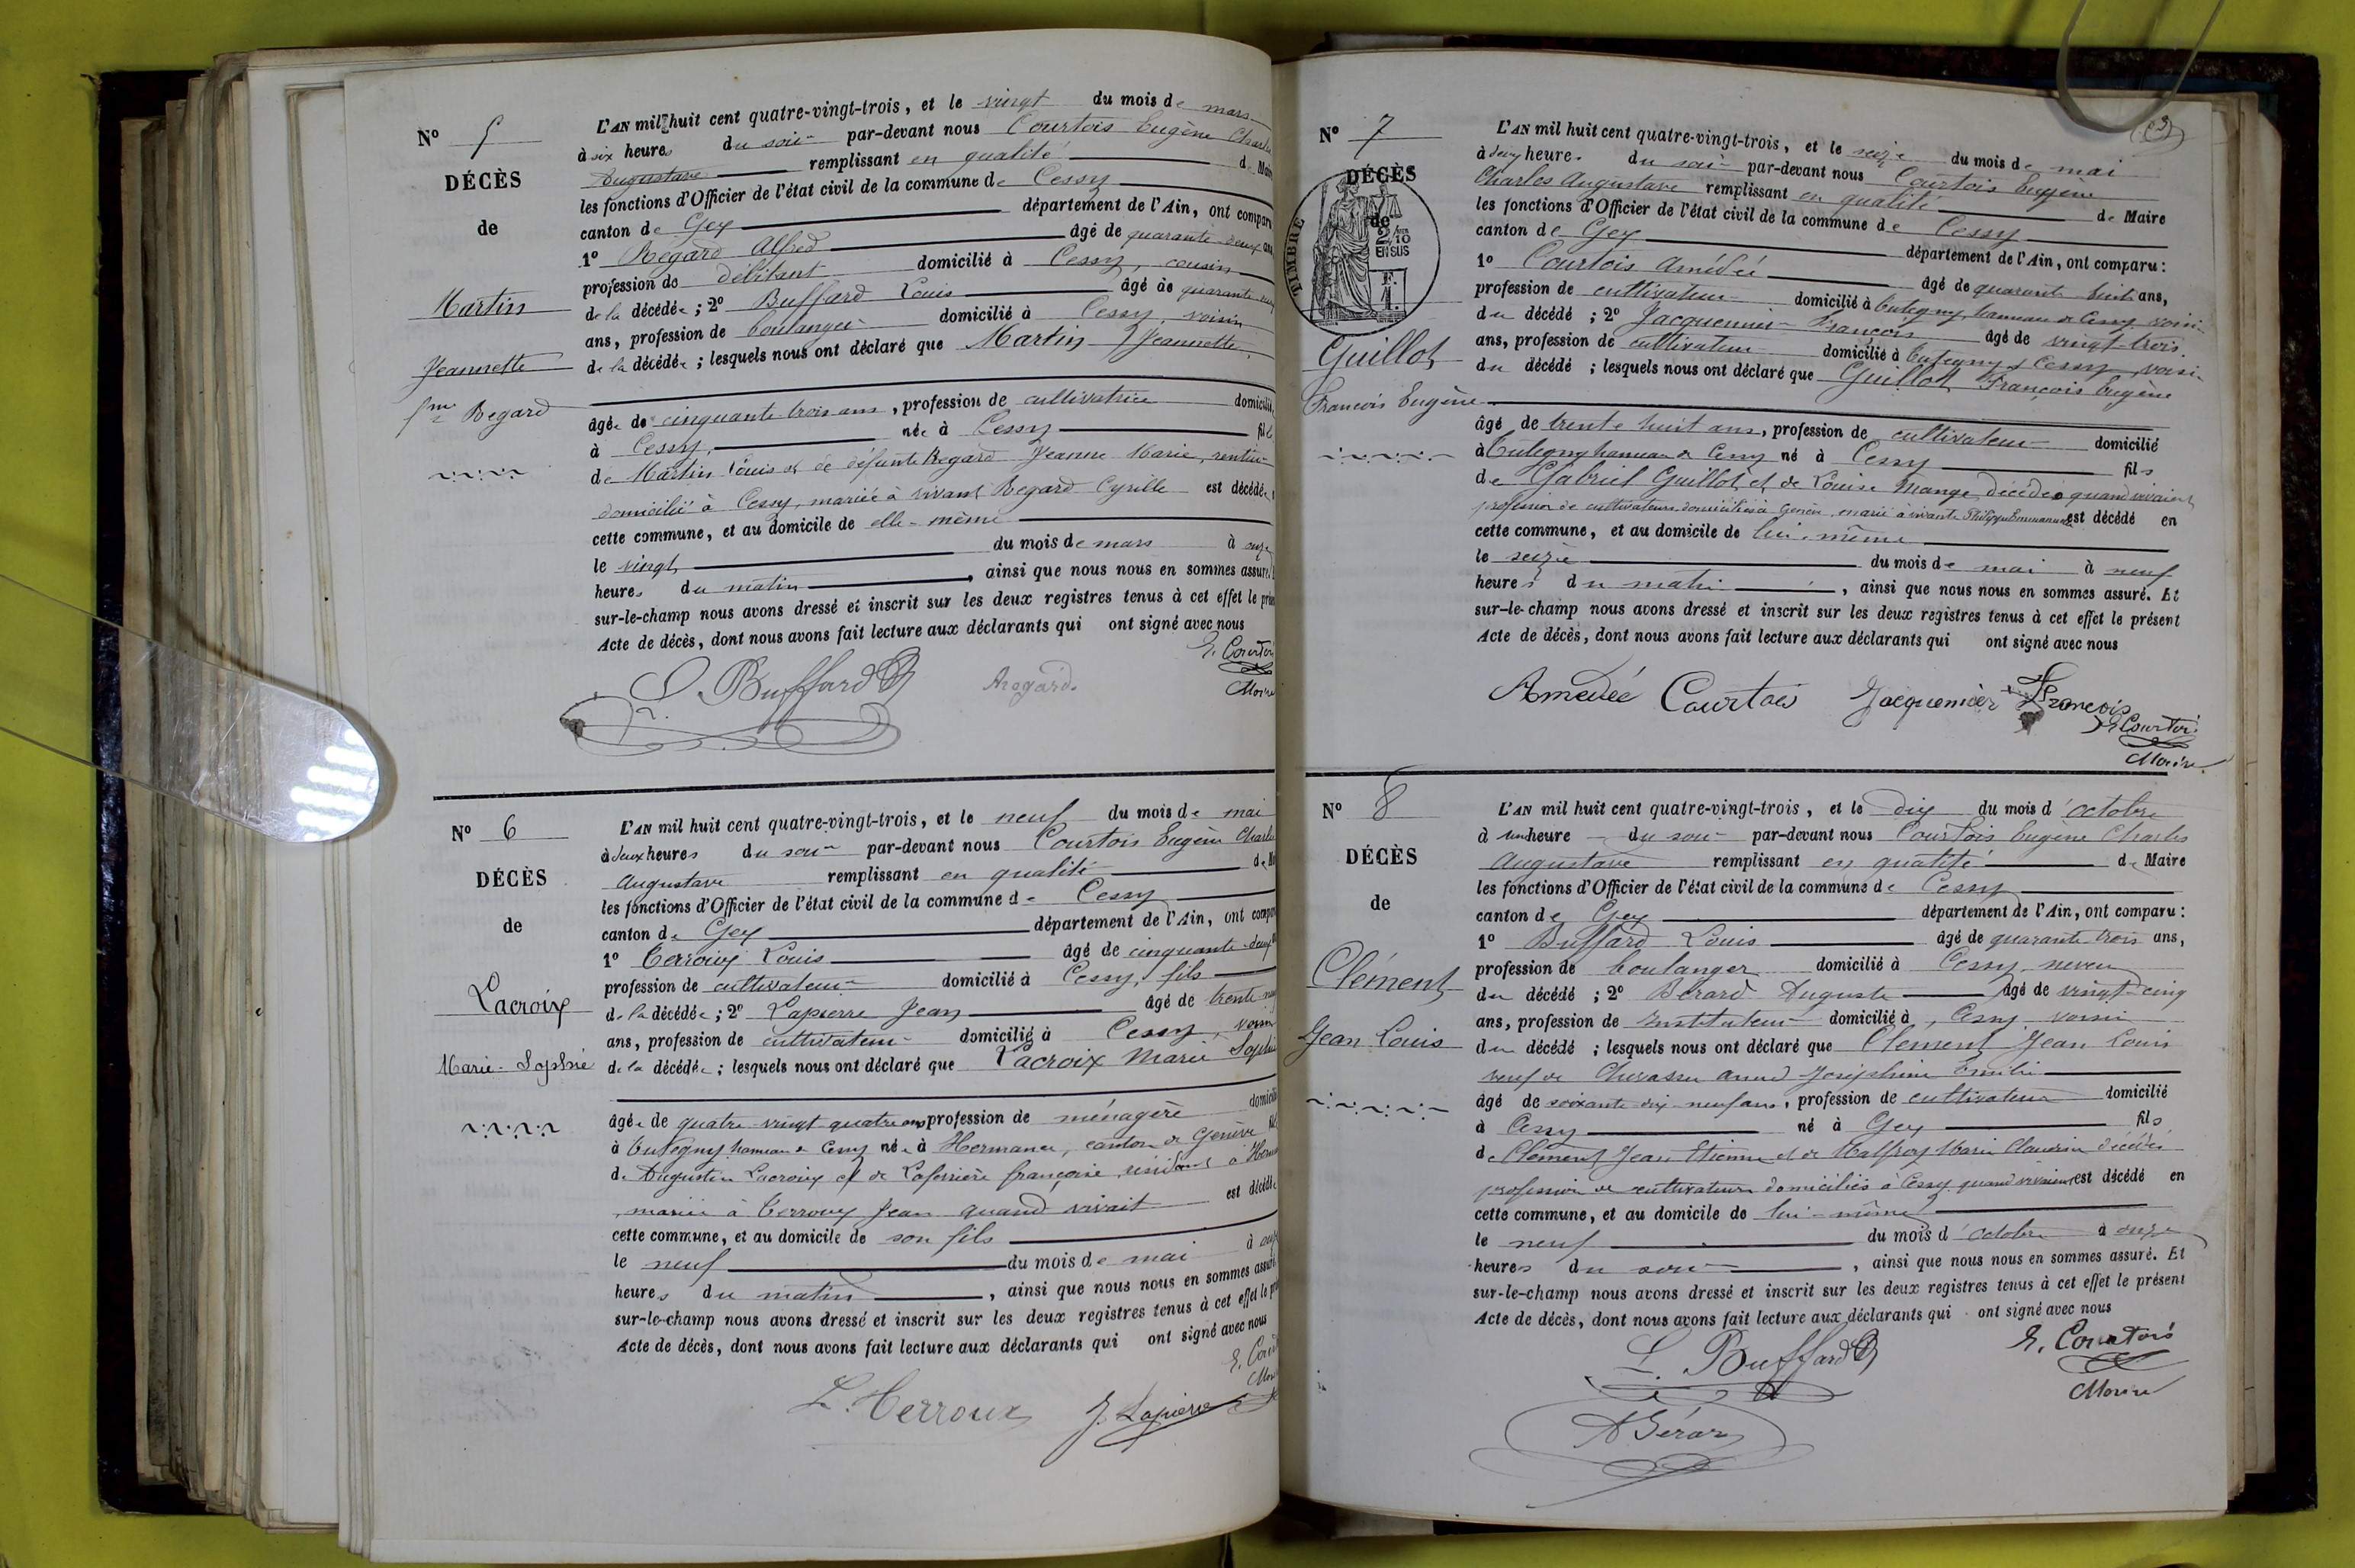 N° 5
DÉCÈS
de
Martin
Jeannette
fme Regard
L'AN mil huit cent quatre-vingt-trois, et le vingt du mois de mars
à six heures du soir par-devant nous Courtois Eugène Charles
Augustave remplissant en qualité de Maire
les fonctions d'Officier de l'état civil de la commune de Cessy
canton de Gex département de l'Ain, ont comparu
1° Regard Alfred âgé de quarante deux ans
profession de débitant domicilié à Cessy, cousin
de la décédée ; 2° Buffard Louis âgé de quarante
ans, profession de boulanger domicilié à Cessy, voisin
de la décédée ; lesquels nous ont déclaré que Martin Jeannette,
âgée de cinquante trois ans, profession de cultivatrice domicilié
à Cessy, née à Cessy fille
de Martin Louis et de défunte Regard Jeanne Marie, rentier
domicilié à Cessy, mariée à vivant Regard Cyrille est décédée
cette commune, et au domicile de elle-même
le vingt du mois de mars à onze
heures du matin, ainsi que nous nous en sommes assuré.
sur-le-champ nous avons dressé et inscrit sur les deux registres tenus à cet effet le présent
Acte de décès, dont nous avons fait lecture aux déclarants qui ont signé avec nous
L. Buffard A Regard. E. Courtois
Maire
N° 6
DÉCÈS
de
Lacroix
Marie-Sophie
L'AN mil huit cent quatre-vingt-trois, et le neuf du mois de mai
à deux heures du soir par-devant nous Courtois Eugène Charles
Augustave remplissant en qualité de
les fonctions d'Officier de l'état civil de la commune de Cessy
canton de Gex département de l'Ain, ont comparu
1° Terroux Louis âgé de cinquante-deux
profession de cultivateur domicilié à Cessy, fils
de la décédée ; 2° Lapierre Jean âgé de trente
ans, profession de cultivateur domicilié à Cessy, voisin
de la décédée ; lesquels nous ont déclaré que Lacroix Marie Sophie
âgée de quatre-vingt quatre ans profession de ménagère domicilié
à Tutegny hameau de Cessy née à Hermance, canton de Genève
de Augustin Lacroix et de Laferrière françoise, résidant à
mariée à Terroux Jean quand vivait est décédée
cette commune, et au domicile de son fils
le neuf du mois de mai à onze
heures du matin, ainsi que nous nous en sommes assuré
sur-le-champ nous avons dressé et inscrit sur les deux registres tenus à cet effet le
Acte de décès, dont nous avons fait lecture aux déclarants qui ont signé avec nous
L. Terroux J. Lapierre
N° 7
DÉCÈS
de
TIMBRE
2/10
EN SUS
Guillot
François Eugène
L'AN mil huit cent quatre-vingt-trois, et le seize du mois de mai
à deux heures du soir par-devant nous Courtois Eugène
Charles Augustave remplissant en qualité de Maire
les fonctions d'Officier de l'état civil de la commune de Cessy
canton de Gex département de l'Ain, ont comparu :
1° Courtois Amédée âgé de quarante huit ans,
profession de cultivateur domicilié à Tutegny, hameau de Cessy voisin
du décédé ; 2° Jacquemier François âgé de vingt-trois
ans, profession de cultivateur domicilié à Tutegny Cessy voisin
du décédé ; lesquels nous ont déclaré que Guillot François Eugène
âgé de trente huit ans, profession de cultivateur domicilié
à Tutegny hameau de Cessy né à Cessy fils
de Gabriel Guillot et de Louise Mange, décédés quand vivaient
profession de cultivateurs domiciliés à Genève, marié à vivante Philippe est décédé en
cette commune, et au domicile de lui-même
le seize du mois de mai à neuf
heures du matin, ainsi que nous nous en sommes assuré. Et
sur-le-champ nous avons dressé et inscrit sur les deux registres tenus à cet effet le présent
Acte de décès, dont nous avons fait lecture aux déclarants qui ont signé avec nous
Amédée Courtois Jacquemier François
E. Courtois
Maire
N° 8
DÉCÈS
de
Clément
Jean Louis
L'AN mil huit cent quatre-vingt-trois, et le dix du mois d'octobre
à une heure du soir par-devant nous Courtois Eugène Charles
Augustave remplissant en qualité de Maire
les fonctions d'Officier de l'état civil de la commune de Cessy
canton de Gex département de l'Ain, ont comparu :
1° Buffard Louis âgé de quarante trois ans,
profession de boulanger domicilié à Cessy neveu
du décédé ; 2° Berard Auguste âgé de vingt-cinq
ans, profession de Instituteur domicilié à Cessy voisin
du décédé ; lesquels nous ont déclaré que Clément Jean Louis
veuf de Chevassu Joséphine Emilie
âgé de soixante dix-neuf ans, profession de cultivateur domicilié
à Cessy né à Gex fils
de Clément Jean Etienne et de Malfroy Marie Claudine décédés
profession de cultivateurs domiciliés à Cessy quand vivaient est décédé en
cette commune, et au domicile de lui-même
le neuf du mois d'octobre à onze
heures du soir, ainsi que nous nous en sommes assuré. Et
sur-le-champ nous avons dressé et inscrit sur les deux registres tenus à cet effet le présent
Acte de décès, dont nous avons fait lecture aux déclarants qui ont signé avec nous
L. Buffard E. Courtois
Maire